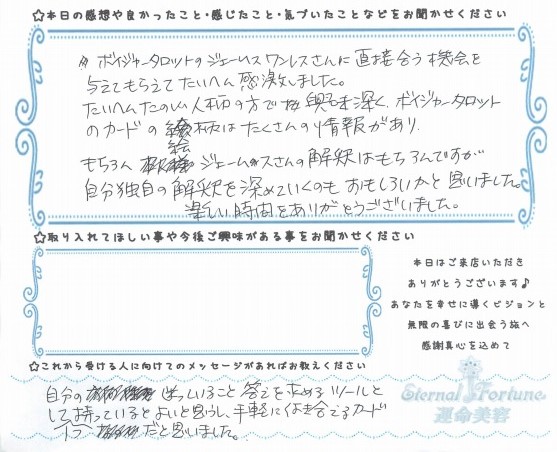 ☆本日の感想や良かったこと・感じたこと・気づいたことなどをお聞かせください
ボイジャータロットのジェームスワンレスさんに直接会う機会を
与えてもらえてたいへん感激しました。
たいへんたのしい人柄の方で 興味深く、ボイジャータロット
のカードの 絵柄はたくさんの情報があり、
もちろん ジェームスさんの解釈はもちろんですが
自分独自の解釈を深めていくのもおもしろいかと思いました。
楽しい時間をありがとうございました。
☆取り入れてほしい事や今後ご興味がある事をお聞かせください
本日はご来店いただき
ありがとうございます♪
あなたを幸せに導くビジョンと
無限の喜びに出会う旅へ
感謝真心を込めて
☆これから受ける人に向けてのメッセージがあればお教えください
自分の 迷っていること 答えを求めるツールと
して持っているとよいと思うし、手軽に 合えるカード
だと思いました。
Eternal Fortune
運命美容